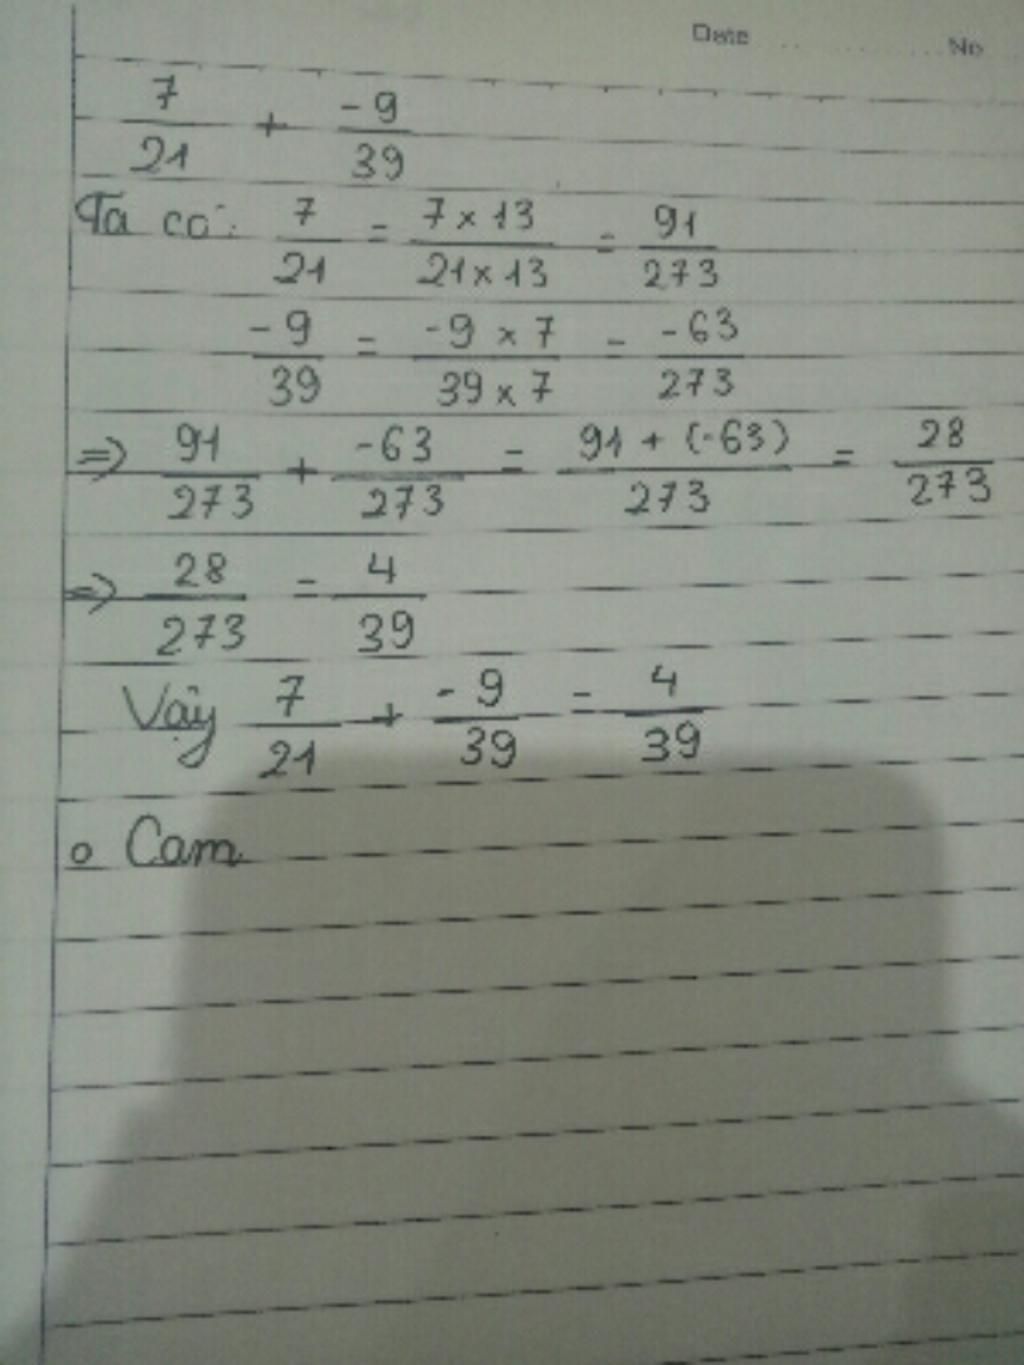 Date No
7/21 + -9/39
Ta có: 7/21 = 7 x 13/21 x 13 = 91/273
-9/39 = -9 x 7/39 x 7 = -63/273
=> 91/273 + -63/273 = 91 + (-63)/273 = 28/273
=> 28/273 = 4/39
Vậy 7/21 + -9/39 = 4/39
o Cam